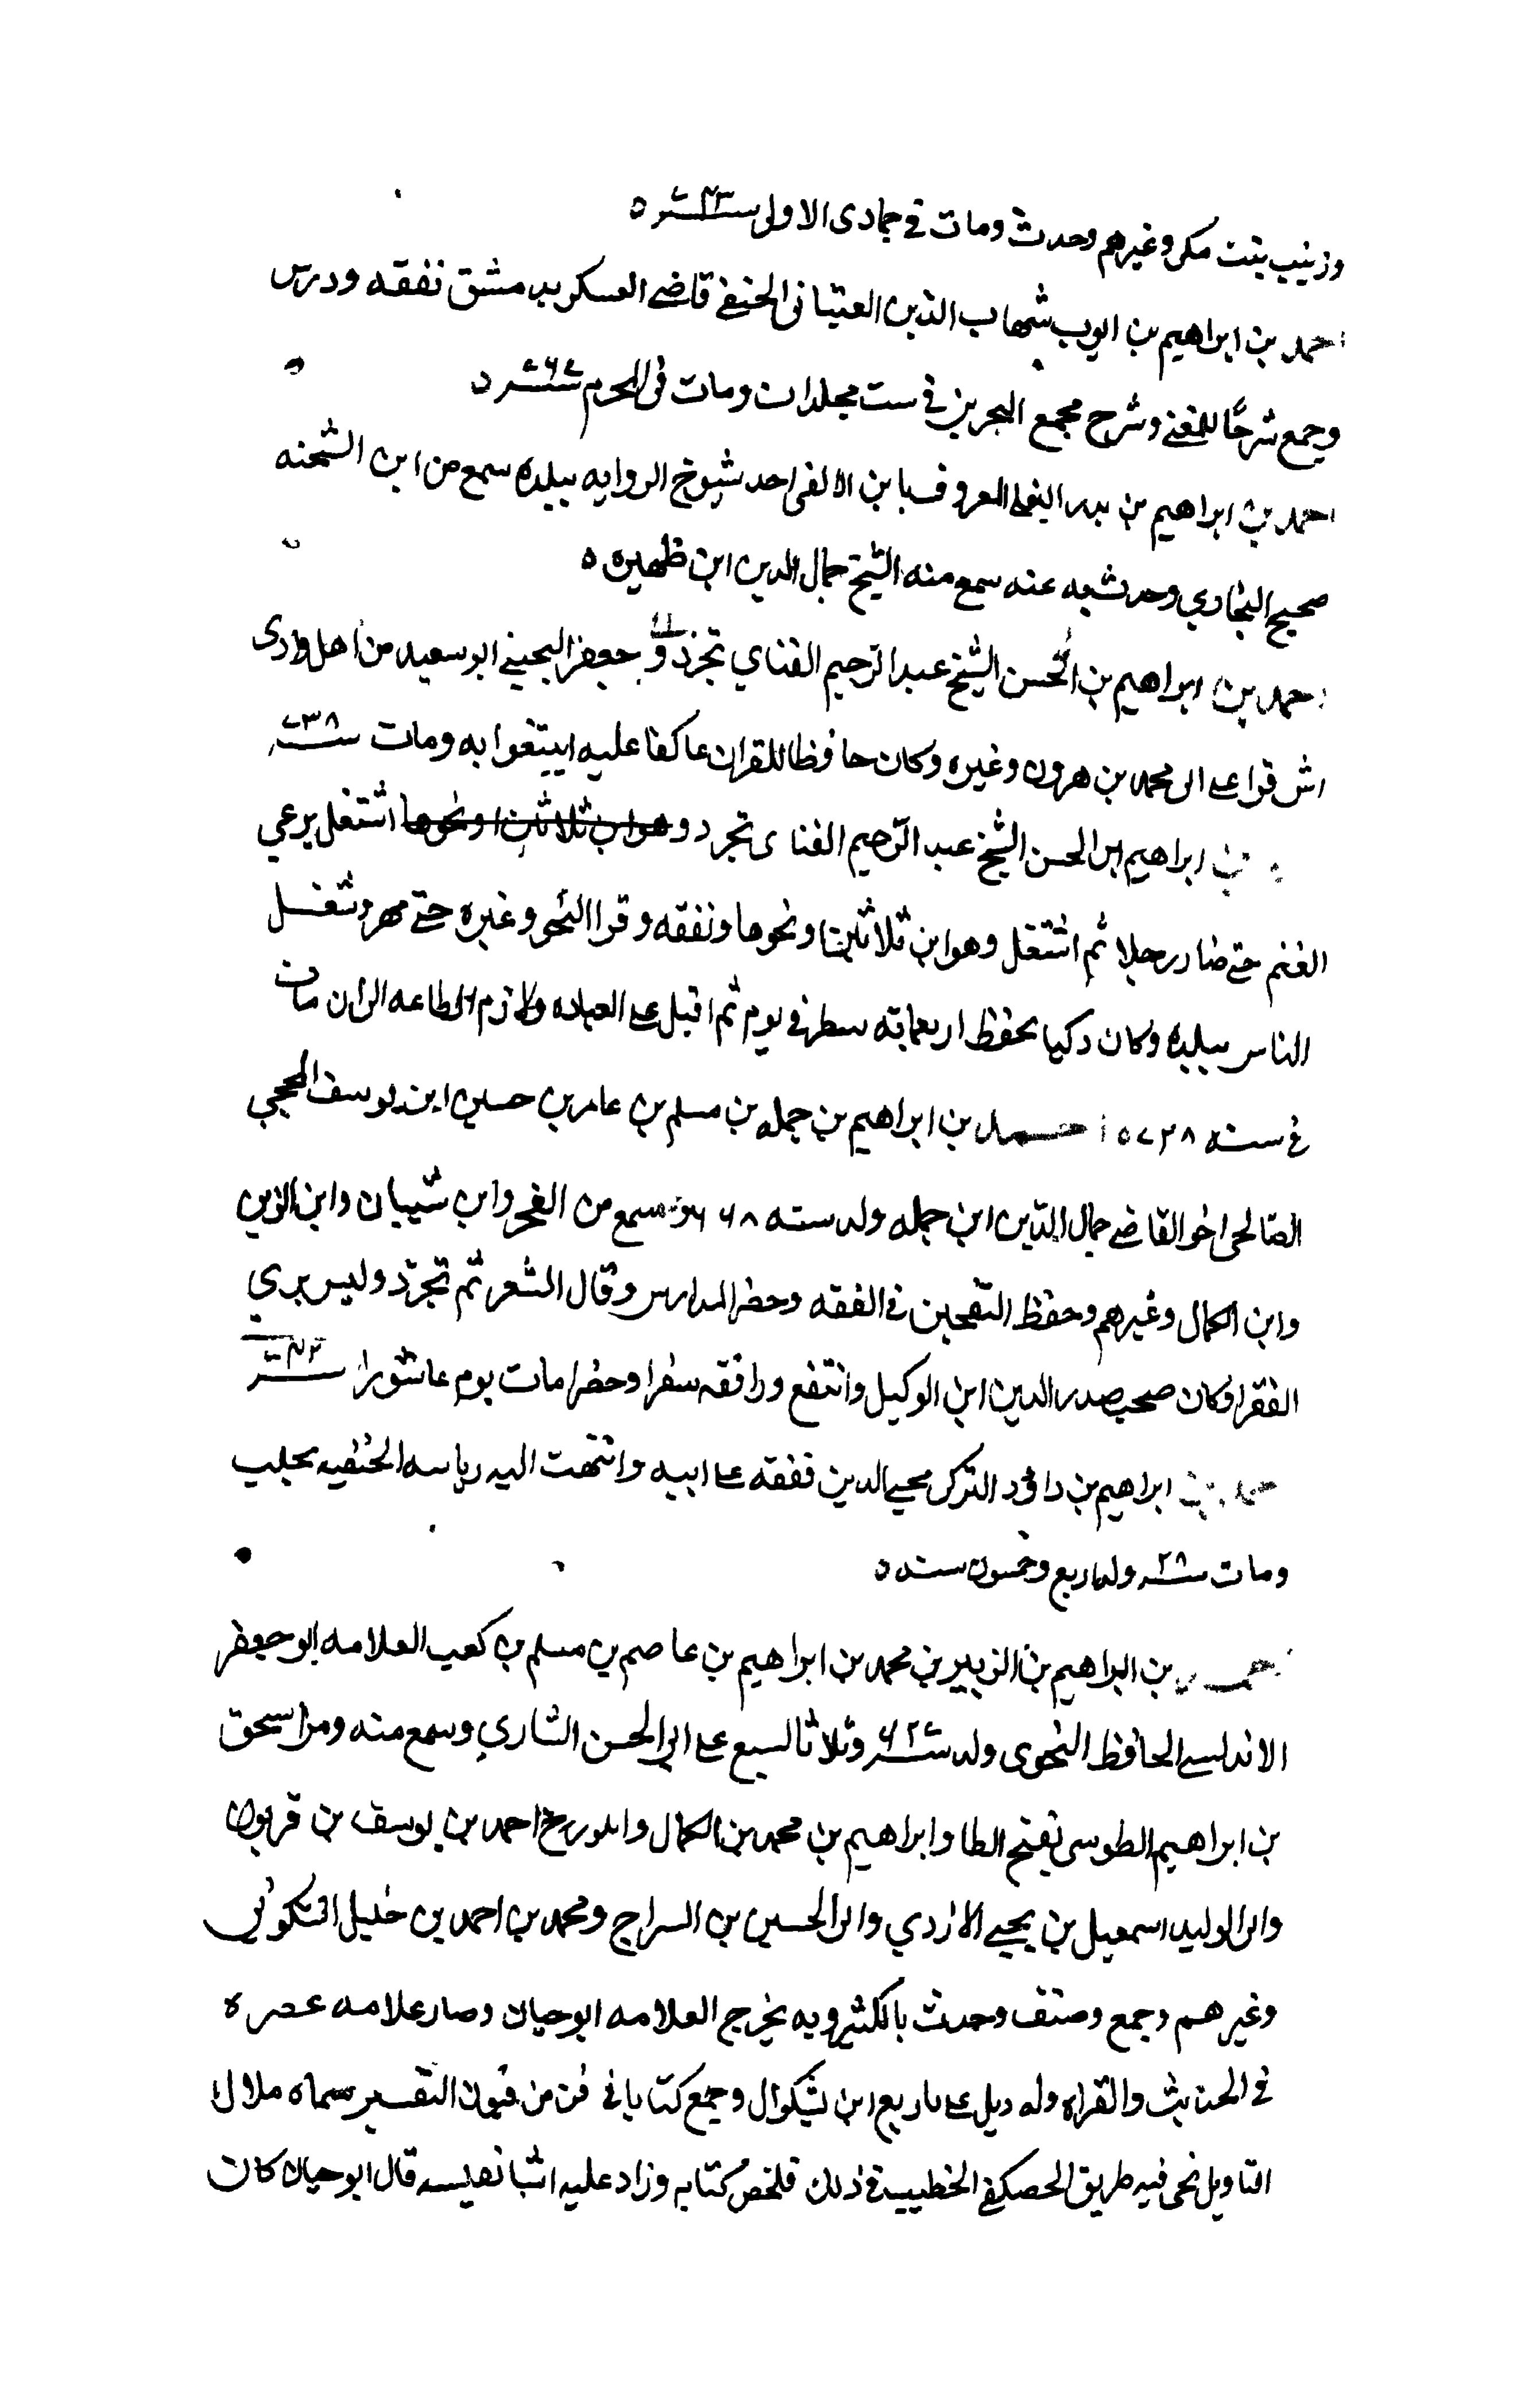 وزينب بنت مكي وغيرهم وحدث ومات في جمادى الاولى سنة ٧٢٣ ٥
احمد بن ابراهيم بن ايوب شهاب الدين العتيابي الحنفي قاضي العسكر بدمشق تفقه ودرس
وجمع شرحا للمغني وشرح مجمع البحرين في ست مجلدات ومات في المحرم سنة ٧٦٧ ٥
احمد بن ابراهيم بن بدر البعلي المعروف بابن الالفي احد شيوخ الروايه ببلده سمع من ابن الشحنه
صحيح البخاري وحدث به عنه سمع منه الشيخ جمال الدين ابن ظهيره ٥
احمد بن ابراهيم بن الحسن الشيخ عبد الرحيم القناي تجرد و جعفر البجيني ابو سعيد من اهل وادى
اش قرا على ابي محمد بن هرون وغيره وكان حافظا للقران عاكفا عليه ومات سنة ٧٣٨
بن ابراهيم ابن الحسن الشيخ عبد الرحيم القناى تجرد وهو ابن ثلاثين او نحوها اشتغل برعي
الغنم حتى صار رجلا ثم اشتغل وهو ابن ثلاثين او نحوها وتفقه وقرا النحو وغيره حتى مهر وشغل
الناس ببلده وكان ذكيا يحفظ اربعمايه سطر في يوم ثم اقبل على العباده ولازم الطاعه الى ان مات
في سنه ٧٢٨ ٥ احمد بن ابراهيم بن جمله بن مسلم بن عامر بن حسين ابن يوسف المحجي
الصالحي اخو القاضي جمال الدين ابن جمله ولد سنه ٦٦٨ وسمع من الفخر وابن شيبان وابن الزين
وابن الكمال وغيرهم وحفظ التعجيز في الفقه وحضر المدارس وقال الشعر ثم تجرد ولبس بزي
الفقرا وكان صحب صدر الدين ابن الوكيل وانتفع ورافقه سفرا وحضرا مات يوم عاشورا سنة ٧٤٢
احمد بن ابراهيم بن داود التركي محيي الدين تفقه على ابيه وانتهت اليه رياسه الحنفيه بحلب
ومات سنة ٧٢٨ وله اربع وخمسون سنه ٥
احمد بن ابراهيم بن الزبير بن محمد بن ابراهيم بن عاصم بن مسلم بن كعب العلامه ابو جعفر
الاندلسي الحافظ النحوى ولد سنة ٦٢٧ وتلا بالسبع على ابي الحسن الشاري وسمع منه ومن اسحق
بن ابراهيم الطوسي بفتح الطا وابراهيم بن محمد بن الكمال والمورخ احمد بن يوسف بن فرتون
وابي الوليد اسمعيل بن يحيى الازدي وابي الحسين بن السراج ومحمد بن احمد بن خليل السكوني
وغيرهم وجمع وصنف وحدث بالكثير وبه تخرج العلامه ابو حيان وصار علامه عصره
في الحديث والقراه وله ذيل على تاريخ ابن بشكوال وجمع كتابا في فن من فنون التفسير سماه ملاك
التاويل نحى فيه طريق الحصكفي الخطيب في ذلك فلخص كتابه وزاد عليه اشيا نفيسه قال ابو حيان كان